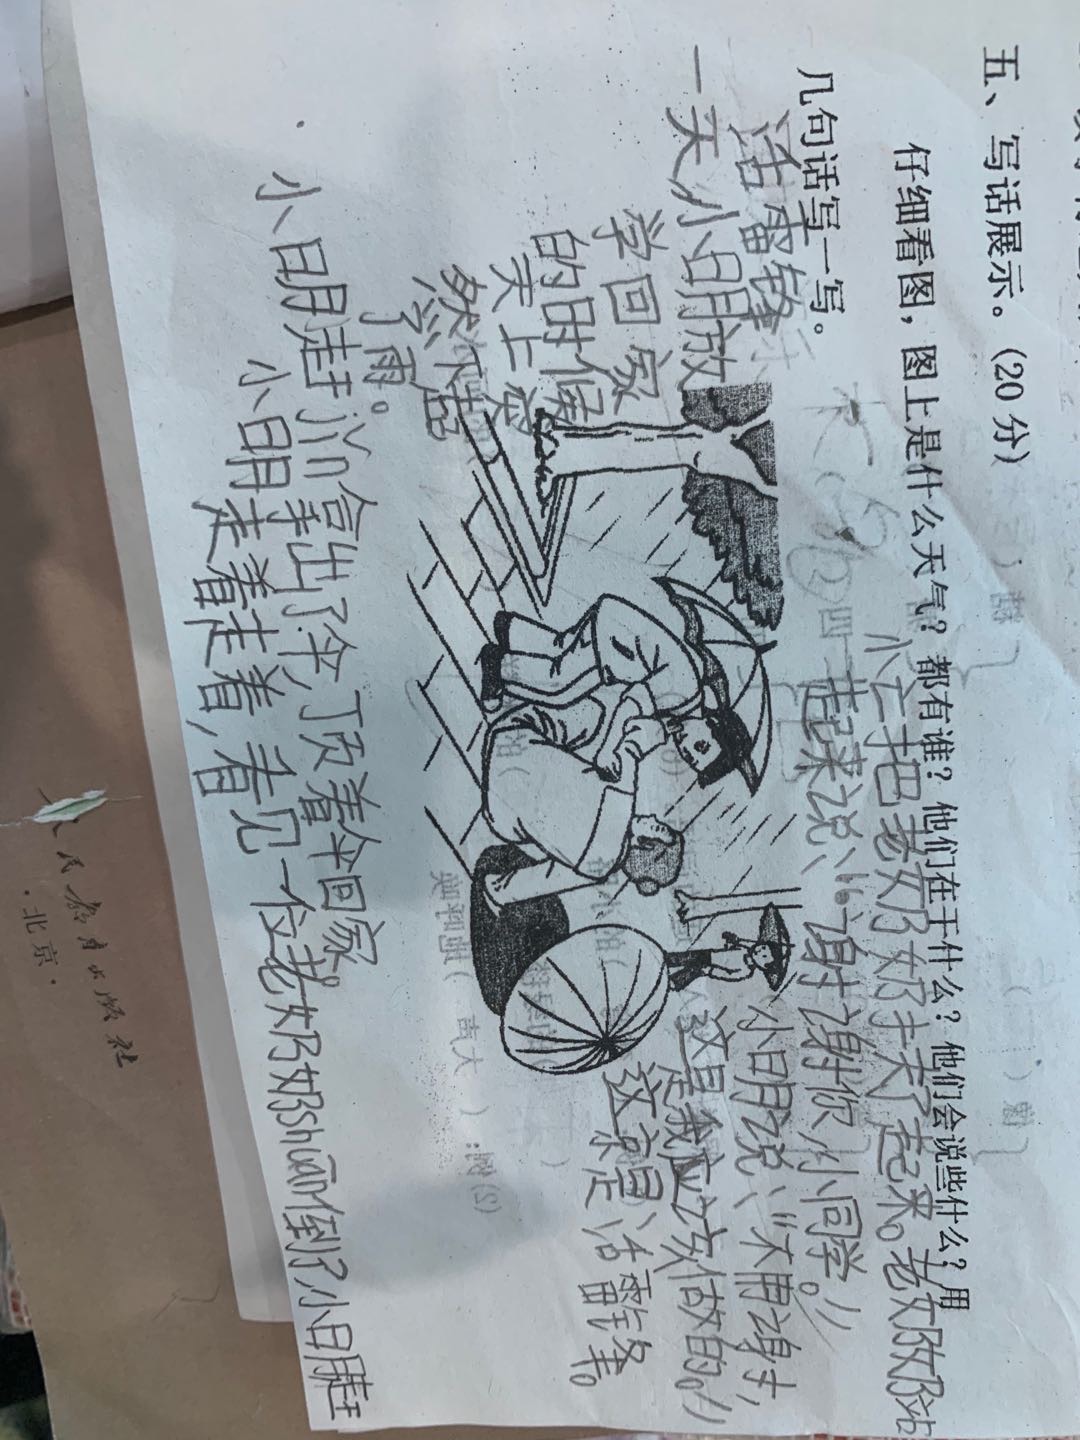 五、写话展示。(20分)
仔细看图，图上是什么天气？都有谁？他们在干什么？他们会说些什么？用
几句话写一写。
活雷锋
一天小明放
学回家
的时候
天上突
然下起
了雨。
小明赶jǐn拿出了伞,顶着伞回家。
小明走着走着,看见一位老奶奶shuāi倒了小明赶
小心把老奶奶扶了起来。老奶奶站
起来说:“谢谢你小同学。”
小明说:“不用谢,
这是我应该做的。”
这就是活雷锋。
人民教育出版社
·北京·